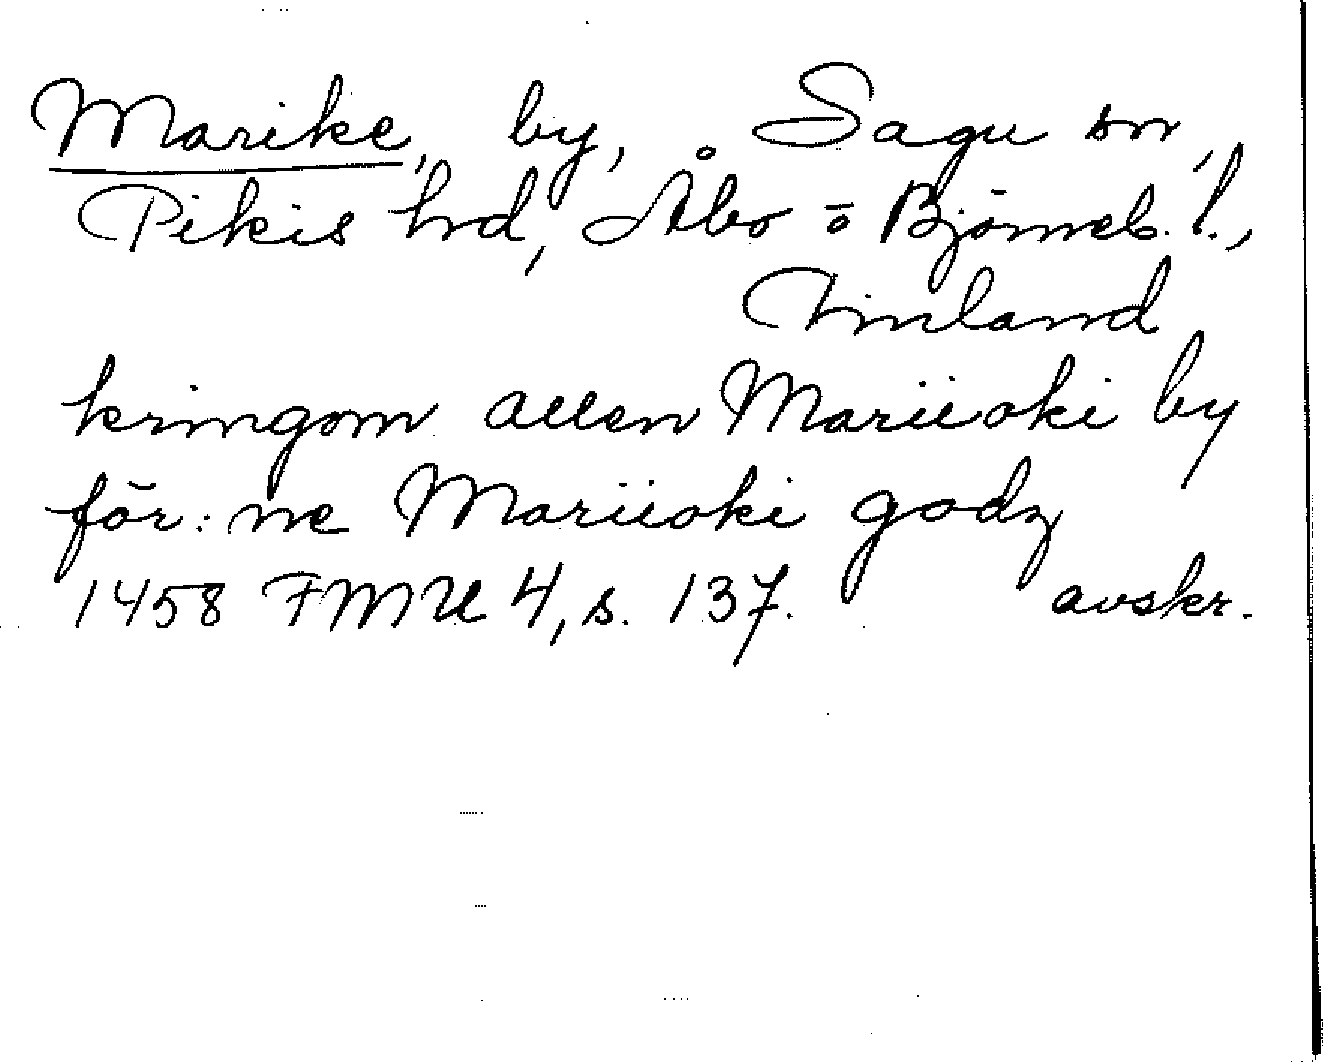 Marike, by, Sagu sn,
Pikis hrd, Åbo o Björneb. l.,
Finland
kringom allen Mariioki by
för: ne Mariioki godz
1458 FMU 4, s. 137. avskr.